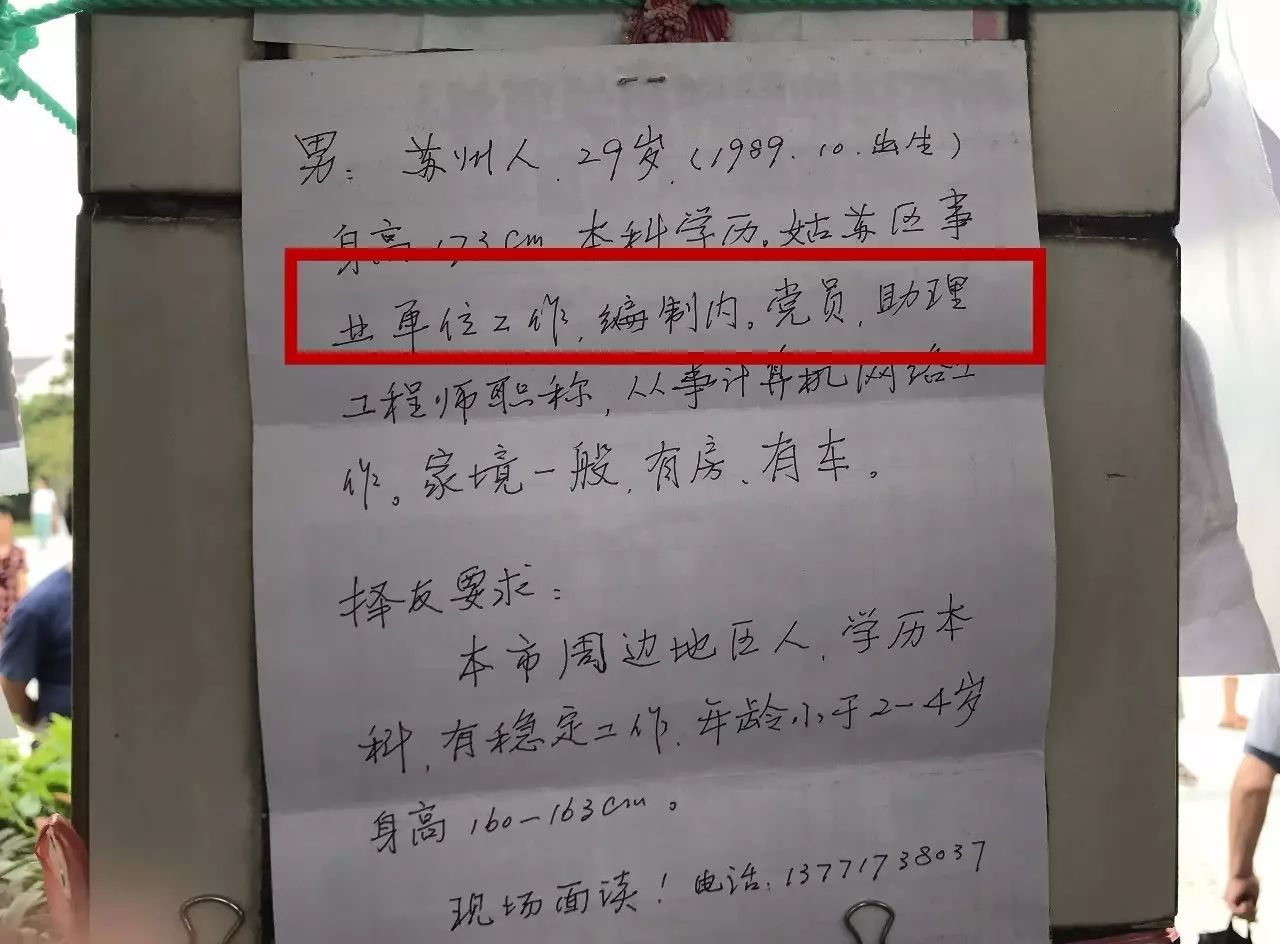 男：苏州人．29岁．（1989．10．出生）
身高173cm 本科学历。姑苏区事
业单位工作，编制内。党员，助理
工程师职称，从事计算机网络工
作。家境一般，有房、有车。
择友要求：
本市周边地区人，学历本
科，有稳定工作．年龄小于2-4岁
身高160-163cm。
现场面读！电话：13771738037